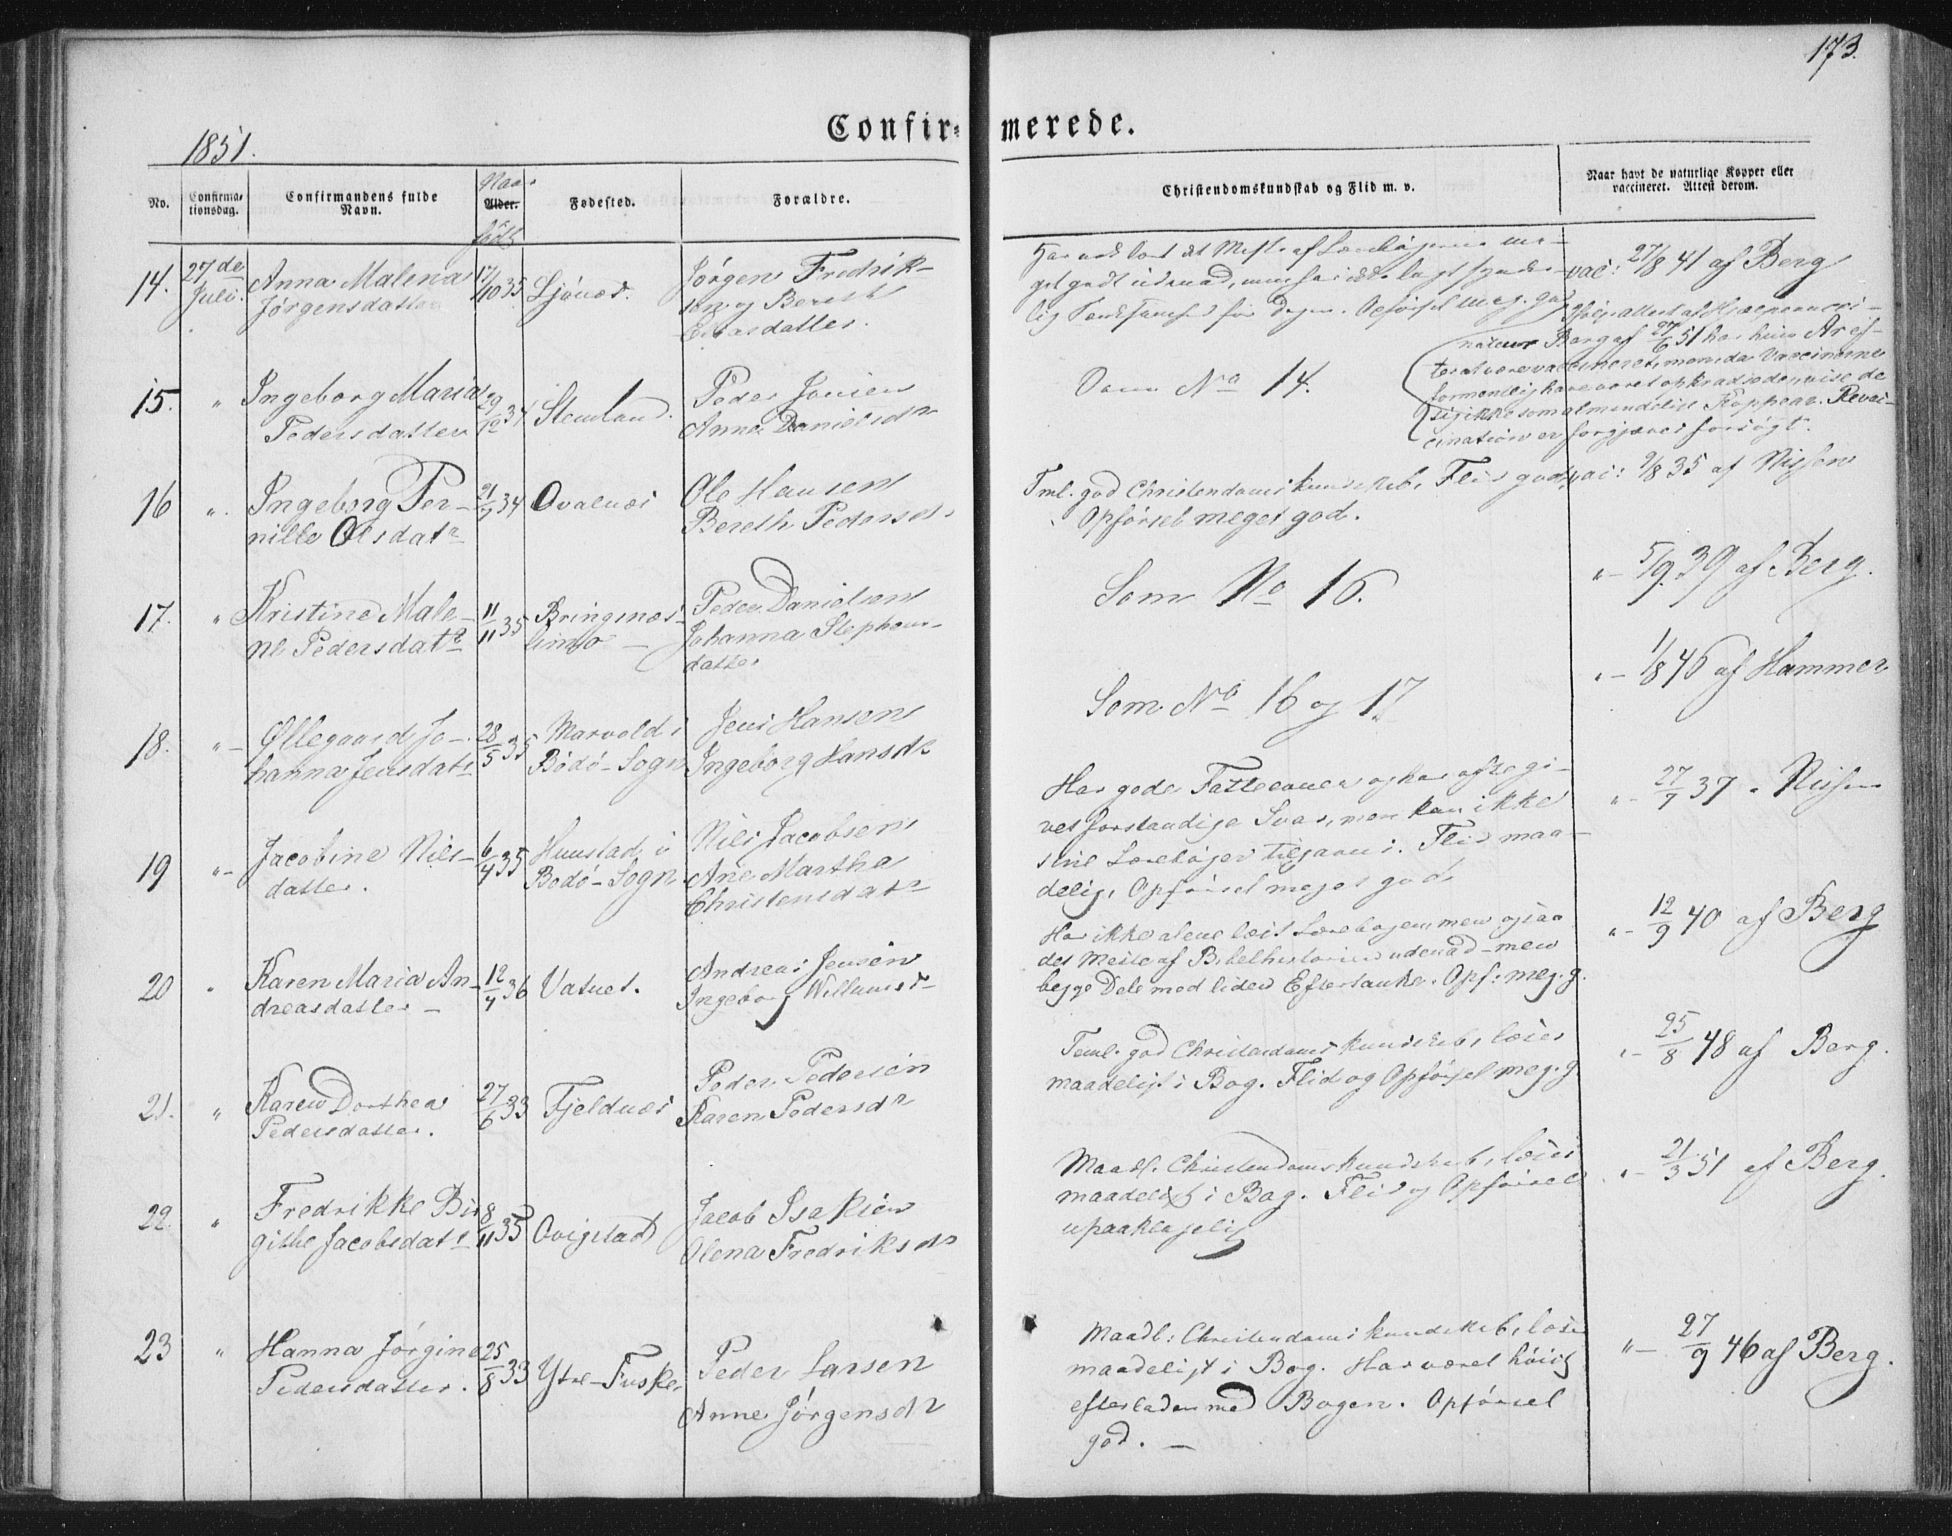 173.
Confirmerede.
1851.
No.
Confirmationsdag.
Confirmandens fulde Navn.
Naar
Alder.
født
Fødested.
Forældre.
Christendomskundskab og Flid m. v.
Naar havt de naturlige Kopper eller vaccineret. Attest derom.
14.
27de Juli.
Anna Malena
Jørgensdatter
17/10 35
Ljønes.
Jørgen Fredrik-
sen og Bereth
datter.
Har lært det Meste af Lærebøgerne me-
get godt udenad, men har ikke lagt
for Dagen. Opførsel meg. god
vac: 27/8 41 af Berg
15.
"
Ingeborg Maria
Pedersdatter
29/12 34
Stemland.
Peder Jensen
Anna Danielsdr
Som No 14.
attest af
Berg af 27/6 51 har hun
vaccineret, men da Vaccinerne
formentlig have været opkradsede, vise de
sig ikke som almindelige Koppear. Revac-
cination er forgjæves forsøgt.
16
".
Ingeborg Per-
nille Olsdatr
21/9 34
Ovalnæs
Ole Hansen
Bereth Pedersdr
Tml. god Christendoms kundskab, Flid god,
Opførsel meget god.
vac: 9/8 35 af Nissen
17.
"
Kristine Male-
ne Pedersdatr
11/11 35
Bringsnæs-
Peder Danielsen
Johanna Stephens-
datter
Som No 16.
"- 5/9 39 af Berg.
18.
"-
Øllegaard Jo-
hanna Jensdatr
28/5 35
Marvold i
Bodø-Sogn
Jens Hansen
Ingeborg Hansdr
Som No 16 og 17
"- 1/8 46 af Hammer
19
"-
Jacobine Nils-
datter.
6/4 35
Hunstad i
Bodø-Sogn
Nils Jacobsen
Ane Martha
Christensdatr
Har gode Fatteevner og har ofte gi-
vet forstandige Svar, men kan ikke
sine Lærebøger tilgavns. Flid maa-
delig, Opførsel meget god
"- 27/7 37 " Nissen
20
"
Karen Maria An-
dreasdatter -
12/4 36
Vatnet.
Andreas Jensen
Ingeborg Willumsd
Har ikke alene læst Lærebogen, men ogsaa
det Meste af Bibelhistorien udenad - men
begge Dele med liden Eftertanke. Opf: meg. g.
"- 12/9 40 af Berg
21.
"
Karen Dorthea
Pedersdatter.
27/6 33
Fjeldnæs
Peder Pedersen
Karen Pedersdr
Teml. god Christendoms kundskab, læser
maadeligt i Bog. Flid og Opførsel meg. g
"- 25/8 48 af Berg.
22.
"
Fredrikke Bir
githe Jacobsdatr
8/11 35
Qvigstad
Jacob Isaksen
Olena Fredriksdr
Maadl. Christendoms kundskab, læser
maadeligt i Bog. Flid og Opførsel
upaaklagelig
"- 21/3 51 af Berg.
23
"
Hanna Jørgine
Pedersdatter.
25/8 33
Ytre-Fuske
Peder Larsen
Anne Jørgensdr
Maadl: Christendoms kundskab, læser
maadeligt i Bog. Har været høist
efterladen med Bogen. Opførsel
god. -
"- 27/9 46 af Berg.